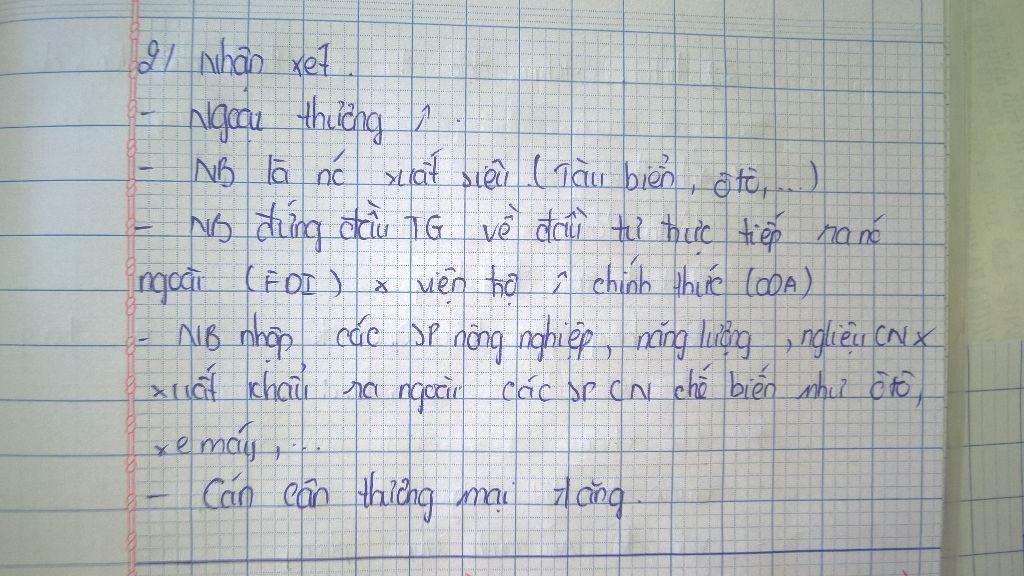 2/ Nhận xét.
- Ngoại thương ↑.
- NB là nc xuất siêu (Tàu biển, ôtô,...)
- NB đứng đầu TG về đầu tư trực tiếp ra nc
ngoài (FDI) x viện trợ ↑ chính thức (ODA)
- NB nhập các SP nông nghiệp, năng lượng, ngliệu CN x
xuất khẩu ra ngoài các SP CN chế biến như ôtô,
xe máy,...
- Cán cân thương mại dương.